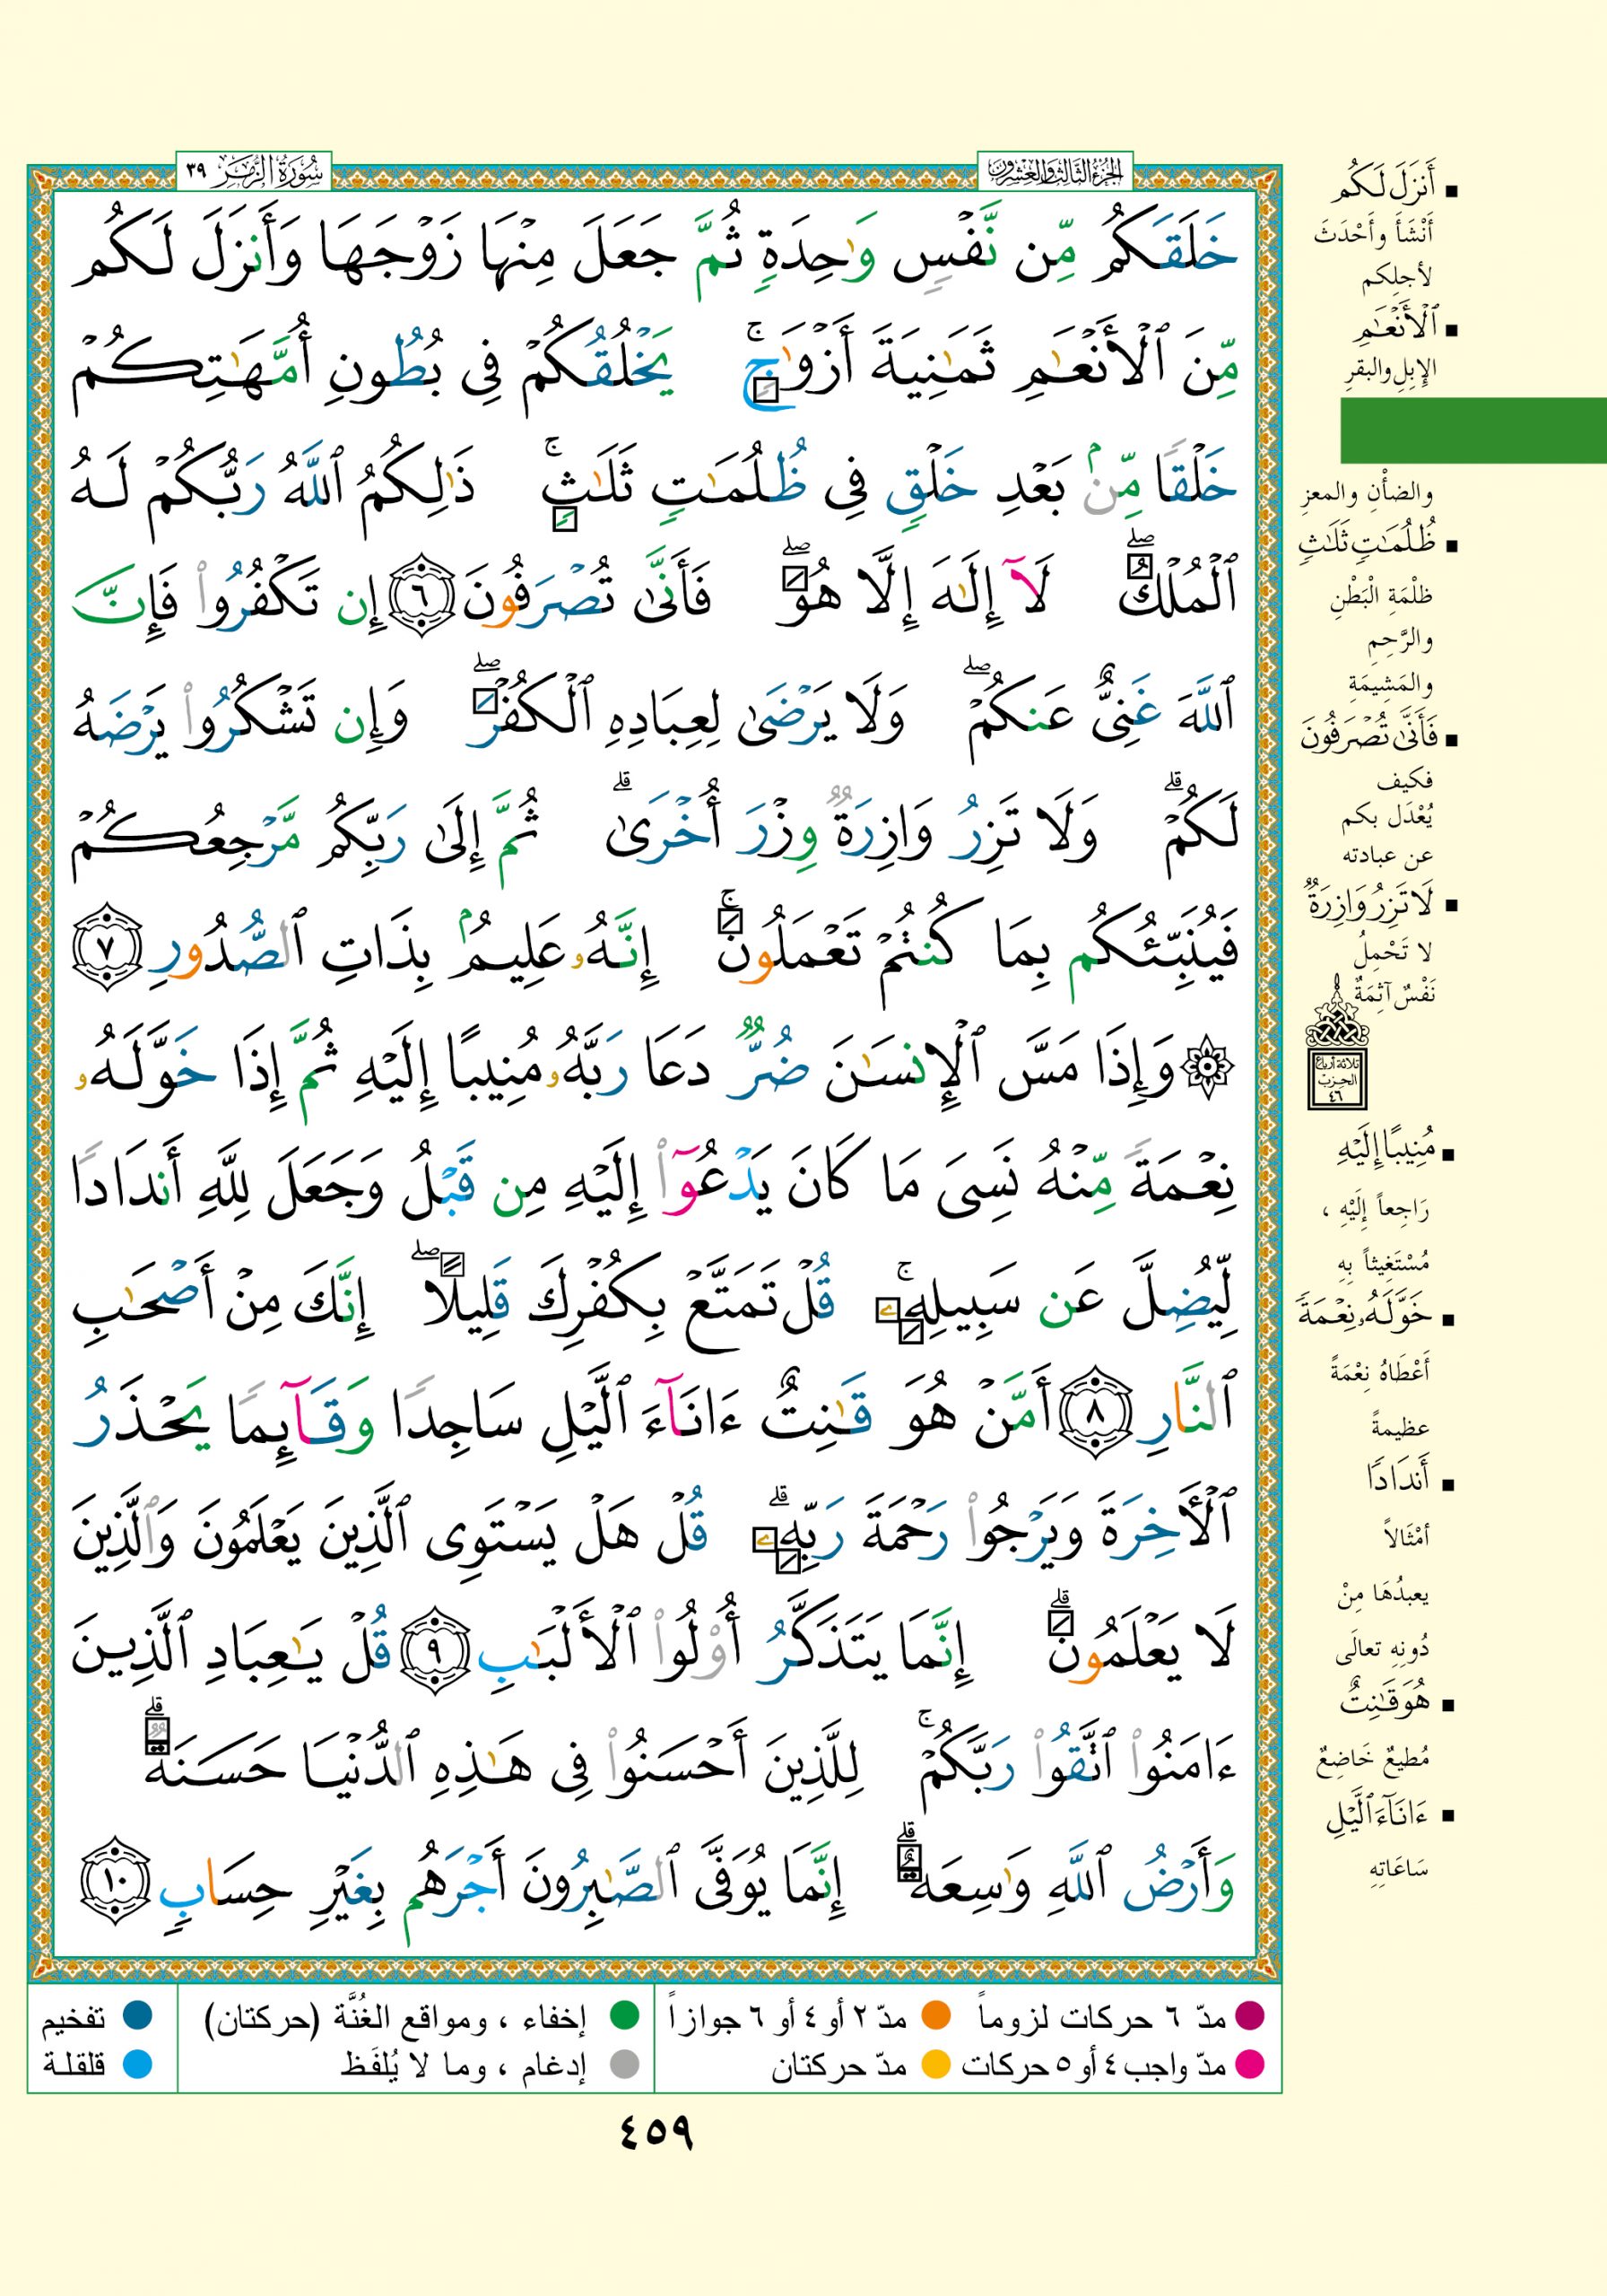 سُورَةُ الزُّمَر ٣٩
الجُزءُ الثَّالِثُ وَالعِشرُون
خَلَقَكُم مِّن نَّفۡسٖ وَٰحِدَةٖ ثُمَّ جَعَلَ مِنۡهَا زَوۡجَهَا وَأَنزَلَ لَكُم
مِّنَ ٱلۡأَنۡعَٰمِ ثَمَٰنِيَةَ أَزۡوَٰجٖۚ يَخۡلُقُكُمۡ فِي بُطُونِ أُمَّهَٰتِكُمۡ
خَلۡقٗا مِّنۢ بَعۡدِ خَلۡقٖ فِي ظُلُمَٰتٖ ثَلَٰثٖۚ ذَٰلِكُمُ ٱللَّهُ رَبُّكُمۡ لَهُ
ٱلۡمُلۡكُۖ لَآ إِلَٰهَ إِلَّا هُوَۖ فَأَنَّىٰ تُصۡرَفُونَ ٦ إِن تَكۡفُرُواْ فَإِنَّ
ٱللَّهَ غَنِيٌّ عَنكُمۡۖ وَلَا يَرۡضَىٰ لِعِبَادِهِ ٱلۡكُفۡرَۖ وَإِن تَشۡكُرُواْ يَرۡضَهُ
لَكُمۡۗ وَلَا تَزِرُ وَازِرَةٞ وِزۡرَ أُخۡرَىٰۗ ثُمَّ إِلَىٰ رَبِّكُم مَّرۡجِعُكُمۡ
فَيُنَبِّئُكُم بِمَا كُنتُمۡ تَعۡمَلُونَۚ إِنَّهُۥ عَلِيمُۢ بِذَاتِ ٱلصُّدُورِ ٧
۞ وَإِذَا مَسَّ ٱلۡإِنسَٰنَ ضُرّٞ دَعَا رَبَّهُۥ مُنِيبًا إِلَيۡهِ ثُمَّ إِذَا خَوَّلَهُۥ
نِعۡمَةٗ مِّنۡهُ نَسِيَ مَا كَانَ يَدۡعُوٓاْ إِلَيۡهِ مِن قَبۡلُ وَجَعَلَ لِلَّهِ أَندَادٗا
لِّيُضِلَّ عَن سَبِيلِهِۦۚ قُلۡ تَمَتَّعۡ بِكُفۡرِكَ قَلِيلًاۖ إِنَّكَ مِنۡ أَصۡحَٰبِ
ٱلنَّارِ ٨ أَمَّنۡ هُوَ قَٰنِتٌ ءَانَآءَ ٱلَّيۡلِ سَاجِدٗا وَقَآئِمٗا يَحۡذَرُ
ٱلۡأٓخِرَةَ وَيَرۡجُواْ رَحۡمَةَ رَبِّهِۦۗ قُلۡ هَلۡ يَسۡتَوِي ٱلَّذِينَ يَعۡلَمُونَ وَٱلَّذِينَ
لَا يَعۡلَمُونَۗ إِنَّمَا يَتَذَكَّرُ أُوْلُواْ ٱلۡأَلۡبَٰبِ ٩ قُلۡ يَٰعِبَادِ ٱلَّذِينَ
ءَامَنُواْ ٱتَّقُواْ رَبَّكُمۡۚ لِلَّذِينَ أَحۡسَنُواْ فِي هَٰذِهِ ٱلدُّنۡيَا حَسَنَةٞۗ
وَأَرۡضُ ٱللَّهِ وَٰسِعَةٌۗ إِنَّمَا يُوَفَّى ٱلصَّٰبِرُونَ أَجۡرَهُم بِغَيۡرِ حِسَابٖ ١٠
أَنزَلَ لَكُم
أَنْشَأَ وأَحْدَثَ
لأجلِكم
ٱلۡأَنۡعَٰمِ
الإِبِلِ والبقرِ
والضأْنِ والمعزِ
ظُلُمَٰتٖ ثَلَٰثٖ
ظلْمَةِ الْبَطْنِ
والرَّحِمِ
والمَشِيمَةِ
فَأَنَّىٰ تُصۡرَفُونَ
فكيف
يُعْدَل بكم
عن عبادته
لَا تَزِرُ وَازِرَةٞ
لا تَحْمِلُ
نَفْسٌ آثِمَةٌ
ثلاثة أرباع
الحزب
٤٦
مُنِيبًا إِلَيۡهِ
رَاجِعاً إِلَيْهِ ،
مُسْتَغِيثاً بِهِ
خَوَّلَهُۥ نِعۡمَةٗ
أَعْطَاهُ نِعْمَةً
عظيمةً
أَندَادٗا
أمْثَالاً
يعبدُهَا مِنْ
دُونِهِ تعالَى
هُوَ قَٰنِتٌ
مُطيعٌ خَاضِعٌ
ءَانَآءَ ٱلَّيۡلِ
سَاعَاتِهِ
مدّ ٦ حركات لزوماً
مدّ ٢ أو ٤ أو ٦ جوازاً
إخفاء ، ومواقع الغُنَّة (حركتان)
تفخيم
مدّ واجب ٤ أو ٥ حركات
مدّ حركتان
إدغام ، وما لا يُلفَظ
قلقلة
٤٥٩